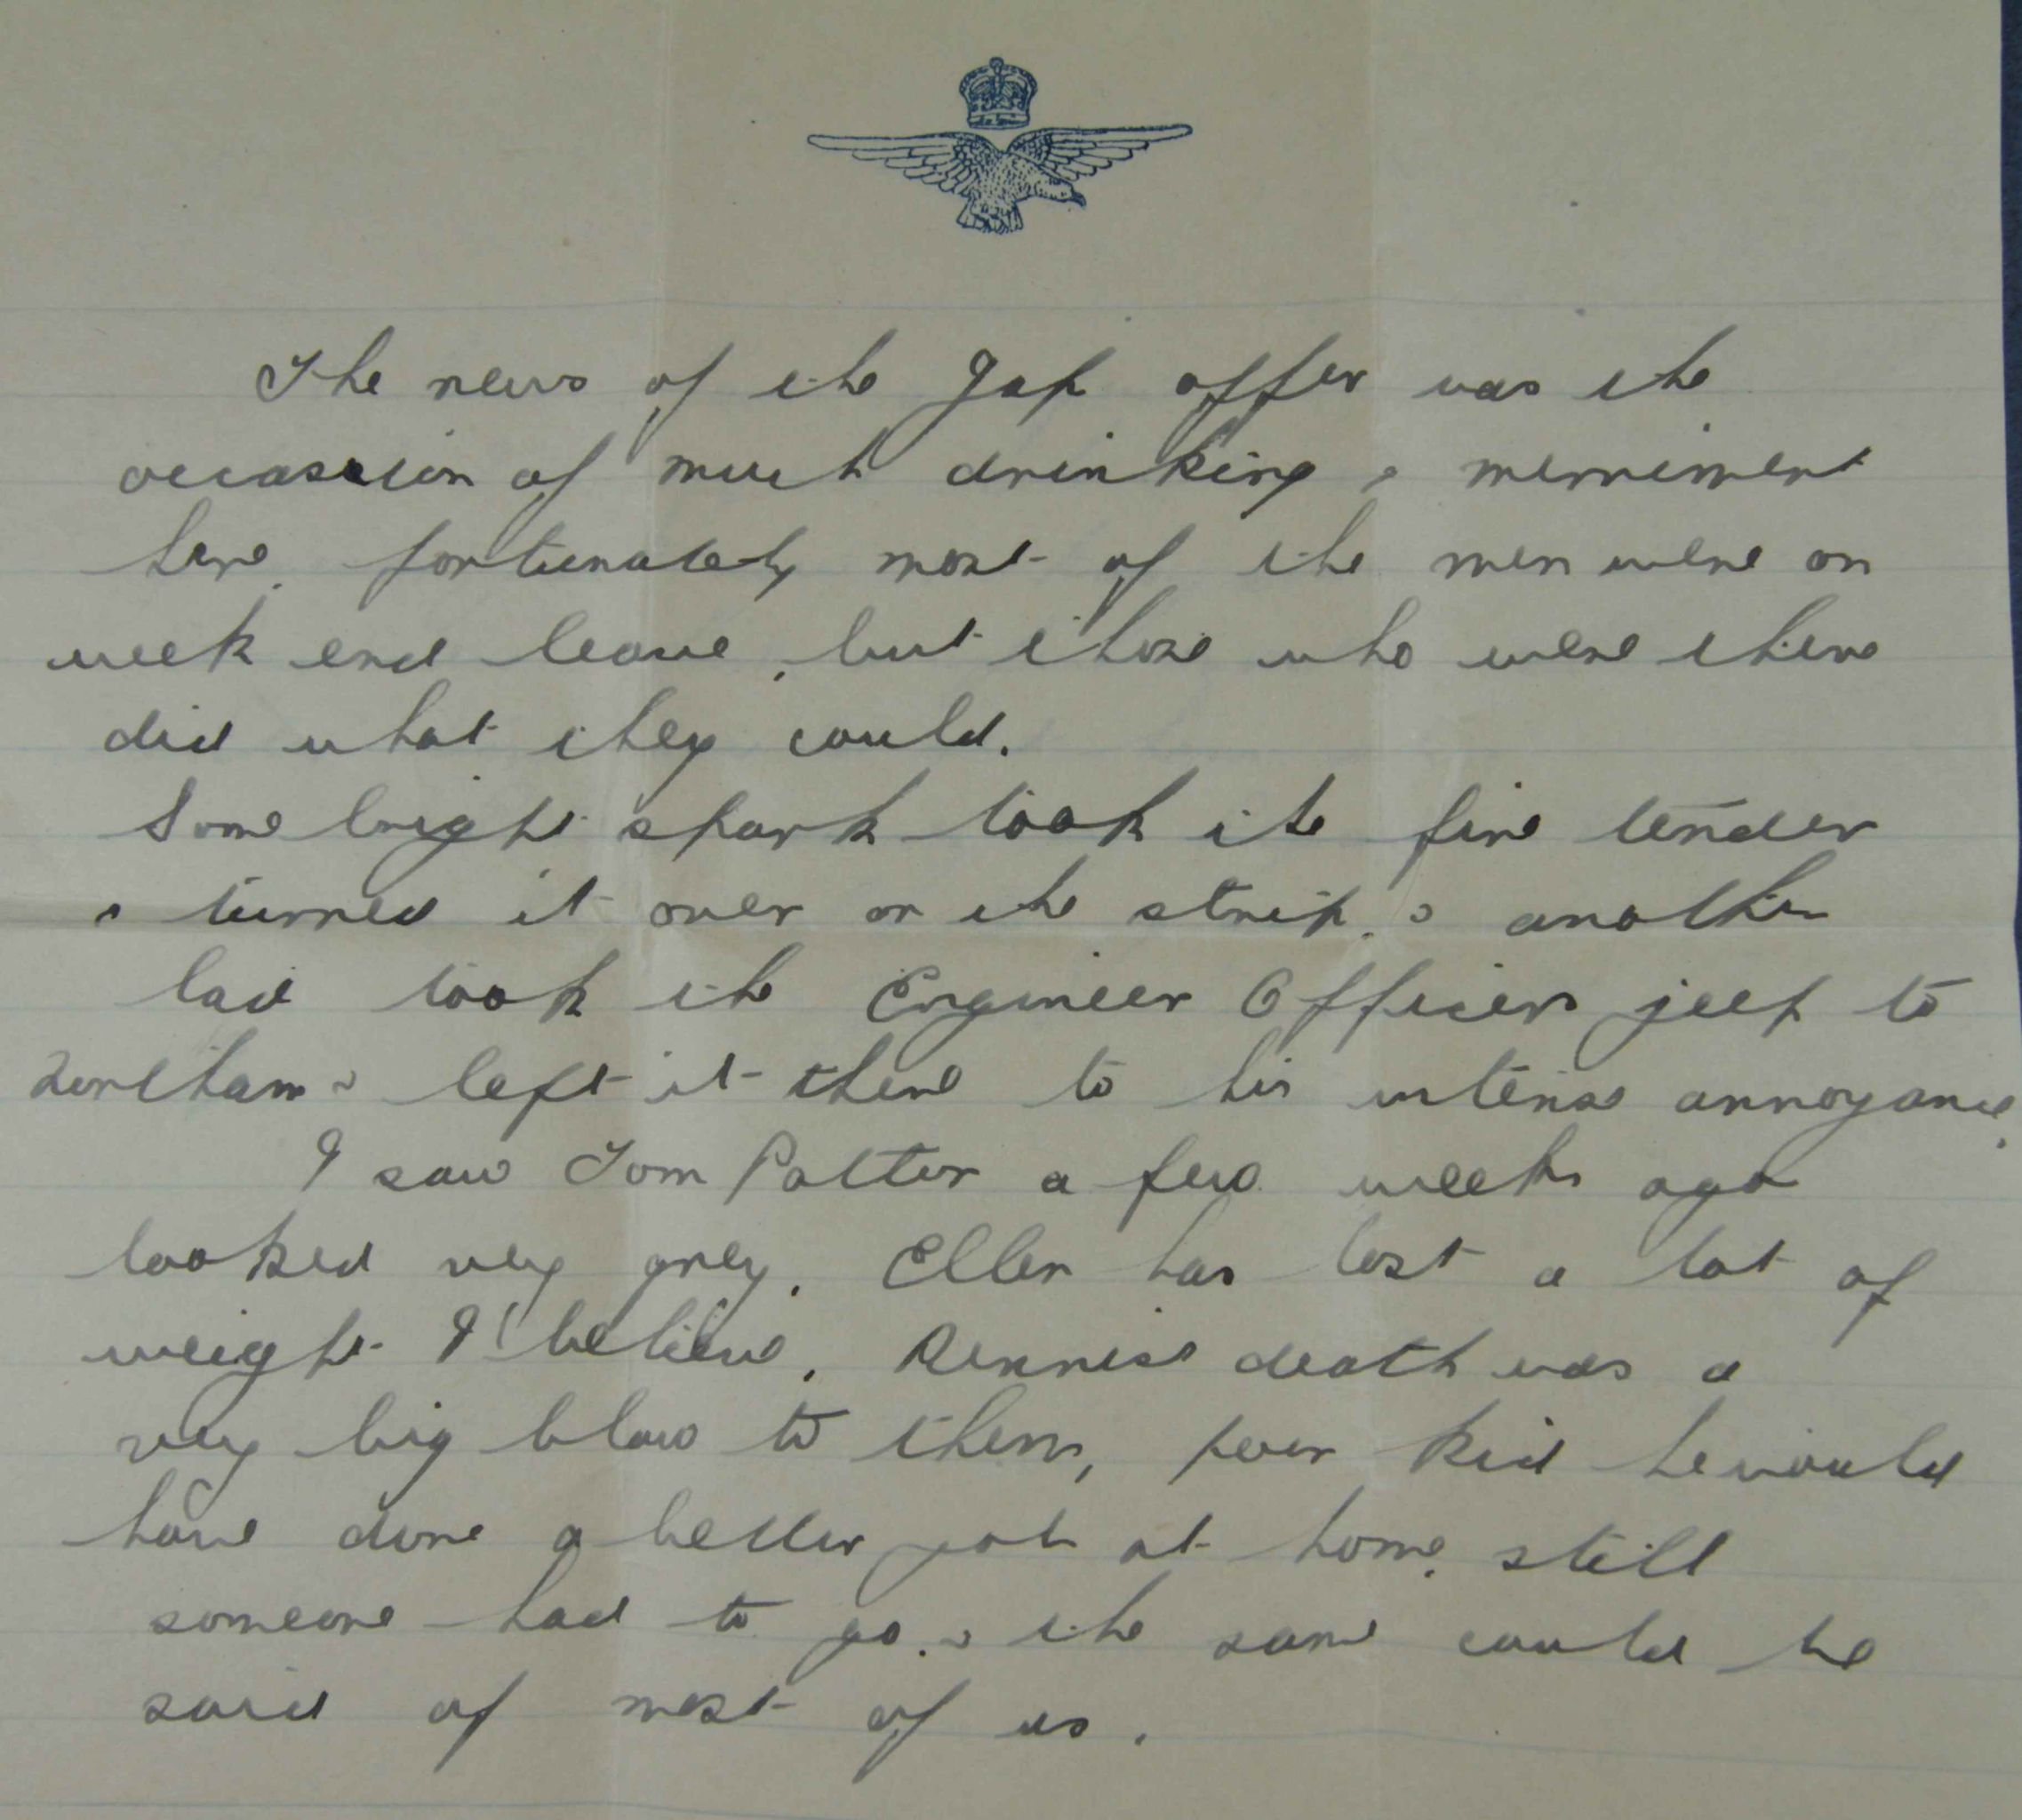 The news of the Jap offer was the
occassion of much drinking & merriment
here, fortunately most of the men were on
week end leave, but those who were there
did what they could.
Some bright spark took the fire tender
& turned it over on the strip, & another
lad took the Engineer Officers jeep to
& left it there to his intense annoyance.
I saw Tom Potter a few weeks ago
looked very grey. Ellen has lost a lot of
weight I believe. Dennise death was a
very big blow to them, poor kid he would
have done a better job at home, still
someone had to go, & the same could be
said of most of us.